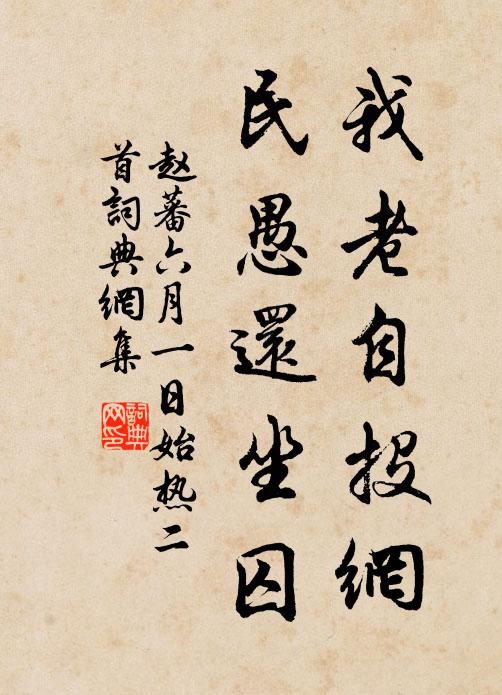 我老自投網
民愚還坐囚
赵蕃六月一日始热二
首詞典網集
詞典网印